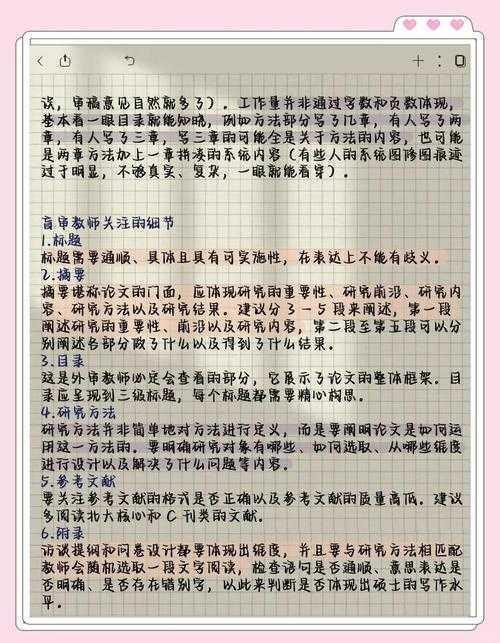 误，审稿意见自然就多了）。工作量并非通过字数和页数体现，
基本看一眼目录就能知晓，例如方法部分写了几章，有人写了两
章，有人写了三章，写三章的可能全是关于方法的内容，也可能
是两章方法加上一章拼凑的系统内容（有些人的系统图修图痕迹
过于明显，不够真实、复杂，一眼就能看穿）。
盲审教师关注的细节
1.标题
标题需要通顺、具体且具有可实施性，在表达上不能有歧义。
2.摘要
摘要堪称论文的门面，应体现研究的重要性、研究前沿、研究内
容、研究方法以及研究结果。建议分3-5段来阐述，第一段
阐述研究的重要性、前沿以及研究内容，第二段至第五段可以分
别阐述各部分做了什么以及得到了什么结果。
3.目录
这是外审教师必定会查看的部分，它展示了论文的整体框架。目
录应呈现到三级标题，每个标题都需要精心构思。
4.研究方法
研究方法并非简单地对方法进行定义，而是要阐明论文是如何运
用这一方法的。要明确研究对象有哪些、如何选取、从哪些维度
进行设计以及解决了什么问题等内容。
5.参考文献
要关注参考文献的格式是否正确以及参考文献的质量高低。建议
多阅读北大核心和C刊类的文献。
6.附录
访谈提纲和问卷设计都要体现出维度，并且要与研究方法相匹配
教师会随机选取一段文字阅读，检查语句是否通顺、意思表达是
否明确、是否存在错别字，以此来判断是否体现出硕士的写作水
平。